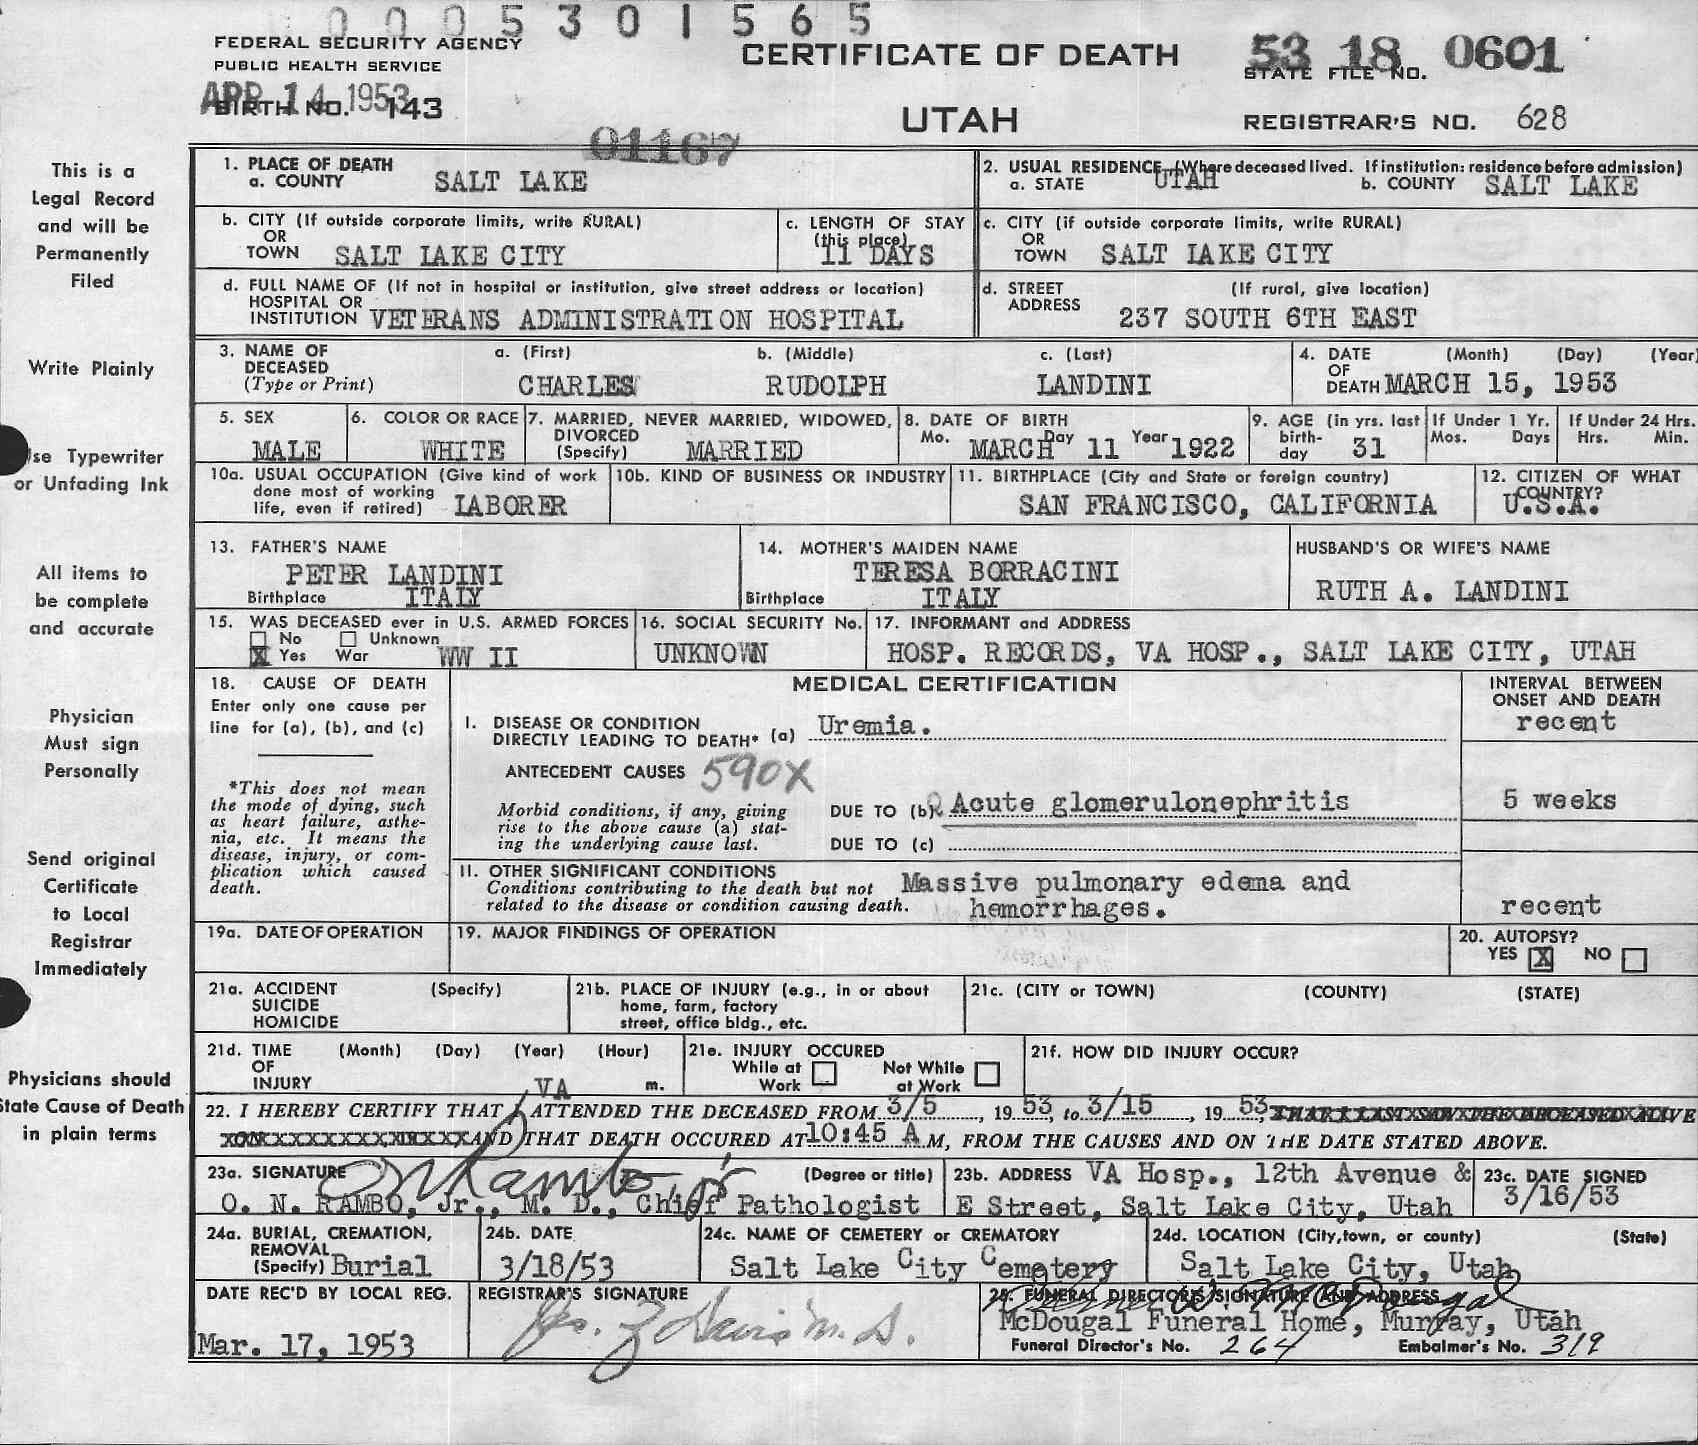 0005301565
FEDERAL SECURITY AGENCY
PUBLIC HEALTH SERVICE
CERTIFICATE OF DEATH
53 18 0601
STATE FILE NO.
APR 14 1953
BIRTH NO. 143
UTAH
REGISTRAR'S NO. 628
01167
This is a
Legal Record
and will be
Permanently
Filed
Write Plainly
se Typewriter
or Unfading Ink
All items to
be complete
and accurate
Physician
Must sign
Personally
Send original
Certificate
to Local
Registrar
Immediately
Physicians should
State Cause of Death
in plain terms
1. PLACE OF DEATH
a. COUNTY SALT LAKE
2. USUAL RESIDENCE (Where deceased lived. If institution: residence before admission)
a. STATE UTAH b. COUNTY SALT LAKE
b. CITY (If outside corporate limits, write RURAL)
OR
TOWN SALT LAKE CITY
c. LENGTH OF STAY
(this place)
11 DAYS
c. CITY (if outside corporate limits, write RURAL)
OR
TOWN SALT LAKE CITY
d. FULL NAME OF (If not in hospital or institution, give street address or location)
HOSPITAL OR
INSTITUTION VETERANS ADMINISTRATION HOSPITAL
d. STREET (If rural, give location)
ADDRESS 237 SOUTH 6TH EAST
3. NAME OF DECEASED (Type or Print)
a. (First) b. (Middle) c. (Last)
CHARLES RUDOLPH LANDINI
4. DATE (Month) (Day) (Year)
OF
DEATH MARCH 15, 1953
5. SEX
MALE
6. COLOR OR RACE
WHITE
7. MARRIED, NEVER MARRIED, WIDOWED,
DIVORCED
(Specify) MARRIED
8. DATE OF BIRTH
Mo. MARCH Day 11 Year 1922
9. AGE (in yrs. last
birth-
day 31
If Under 1 Yr.
Mos. Days
If Under 24 Hrs.
Hrs. Min.
10a. USUAL OCCUPATION (Give kind of work
done most of working
life, even if retired) LABORER
10b. KIND OF BUSINESS OR INDUSTRY
11. BIRTHPLACE (City and State or foreign country)
SAN FRANCISCO, CALIFORNIA
12. CITIZEN OF WHAT
COUNTRY?
U.S.A.
13. FATHER'S NAME
PETER LANDINI
Birthplace ITALY
14. MOTHER'S MAIDEN NAME
TERESA BORRACINI
Birthplace ITALY
HUSBAND'S OR WIFE'S NAME
RUTH A. LANDINI
15. WAS DECEASED ever in U.S. ARMED FORCES
No Unknown
X Yes War WW II
16. SOCIAL SECURITY No.
UNKNOWN
17. INFORMANT and ADDRESS
HOSP. RECORDS, VA HOSP., SALT LAKE CITY, UTAH
18. CAUSE OF DEATH
Enter only one cause per
line for (a), (b), and (c)
*This does not mean
the mode of dying, such
as heart failure, asthe-
nia, etc. It means the
disease, injury, or com-
plication which caused
death.
MEDICAL CERTIFICATION
INTERVAL BETWEEN
ONSET AND DEATH
I. DISEASE OR CONDITION
DIRECTLY LEADING TO DEATH* (a) Uremia.
recent
ANTECEDENT CAUSES 590X
Morbid conditions, if any, giving
rise to the above cause (a) stat-
ing the underlying cause last.
DUE TO (b) Acute glomerulonephritis
5 weeks
DUE TO (c)
II. OTHER SIGNIFICANT CONDITIONS
Conditions contributing to the death but not
related to the disease or condition causing death.
Massive pulmonary edema and
hemorrhages.
recent
19a. DATE OF OPERATION
19. MAJOR FINDINGS OF OPERATION
20. AUTOPSY?
YES X NO
21a. ACCIDENT (Specify)
SUICIDE
HOMICIDE
21b. PLACE OF INJURY (e.g., in or about
home, farm, factory
street, office bldg., etc.
21c. (CITY or TOWN) (COUNTY) (STATE)
21d. TIME (Month) (Day) (Year) (Hour)
OF
INJURY m.
21e. INJURY OCCURED
While at Work Not While at Work
21f. HOW DID INJURY OCCUR?
VA
22. I HEREBY CERTIFY THAT ATTENDED THE DECEASED FROM 3/5, 1953, to 3/15, 1953, THAT I LAST SAW THE DECEASED ALIVE
AND THAT DEATH OCCURED AT 10:45 A M, FROM THE CAUSES AND ON THE DATE STATED ABOVE.
23a. SIGNATURE ON Rambo, Jr (Degree or title)
O. N. RAMBO, Jr., M. D., Chief Pathologist
23b. ADDRESS VA Hosp., 12th Avenue &
E Street, Salt Lake City, Utah
23c. DATE SIGNED
3/16/53
24a. BURIAL, CREMATION,
REMOVAL
(Specify) Burial
24b. DATE
3/18/53
24c. NAME OF CEMETERY or CREMATORY
Salt Lake City Cemetery
24d. LOCATION (City, town, or county) (State)
Salt Lake City, Utah
DATE REC'D BY LOCAL REG.
Mar. 17, 1953
REGISTRAR'S SIGNATURE
Jas. Z Davis M. D.
25. FUNERAL DIRECTOR'S SIGNATURE AND ADDRESS
W. McDougal
McDougal Funeral Home, Murray, Utah
Funeral Director's No. 264 Embalmer's No. 319